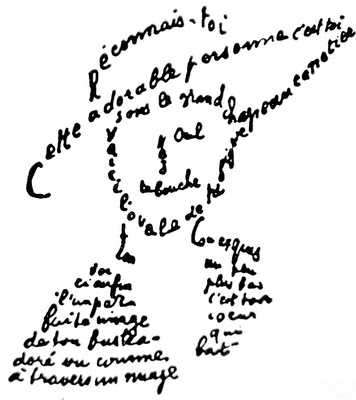 Reconnais-toi
Cette adorable personne c'est toi
sous le grand chapeau canotier
Oeil
Nez
La bouche
Voici l'ovale de ta figure
Ton Cou exquis
Voi
ci enfin
l'imparfa
ite image
de ton buste a-
doré vu comme
à travers un nuage
un peu
plus bas
c'est ton
coeur
qui
bat